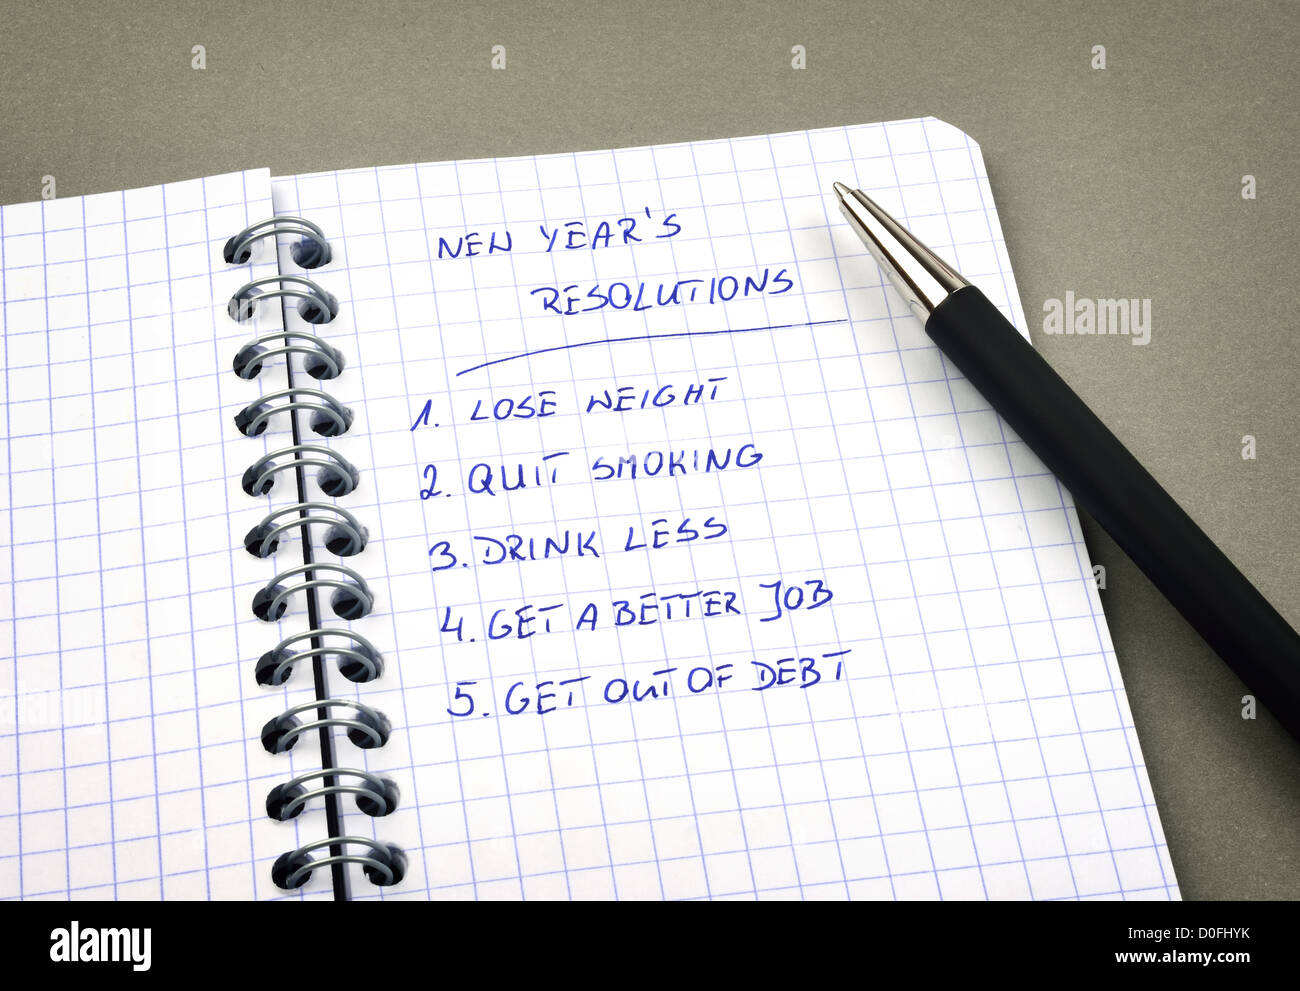 NEW YEAR'S
RESOLUTIONS
1. LOSE WEIGHT
2. QUIT SMOKING
3. DRINK LESS
4. GET A BETTER JOB
5. GET OUT OF DEBT
a a a a
a a
alamy
a
a
alamy a
alamy
Image ID: D0FHYK
www.alamy.com